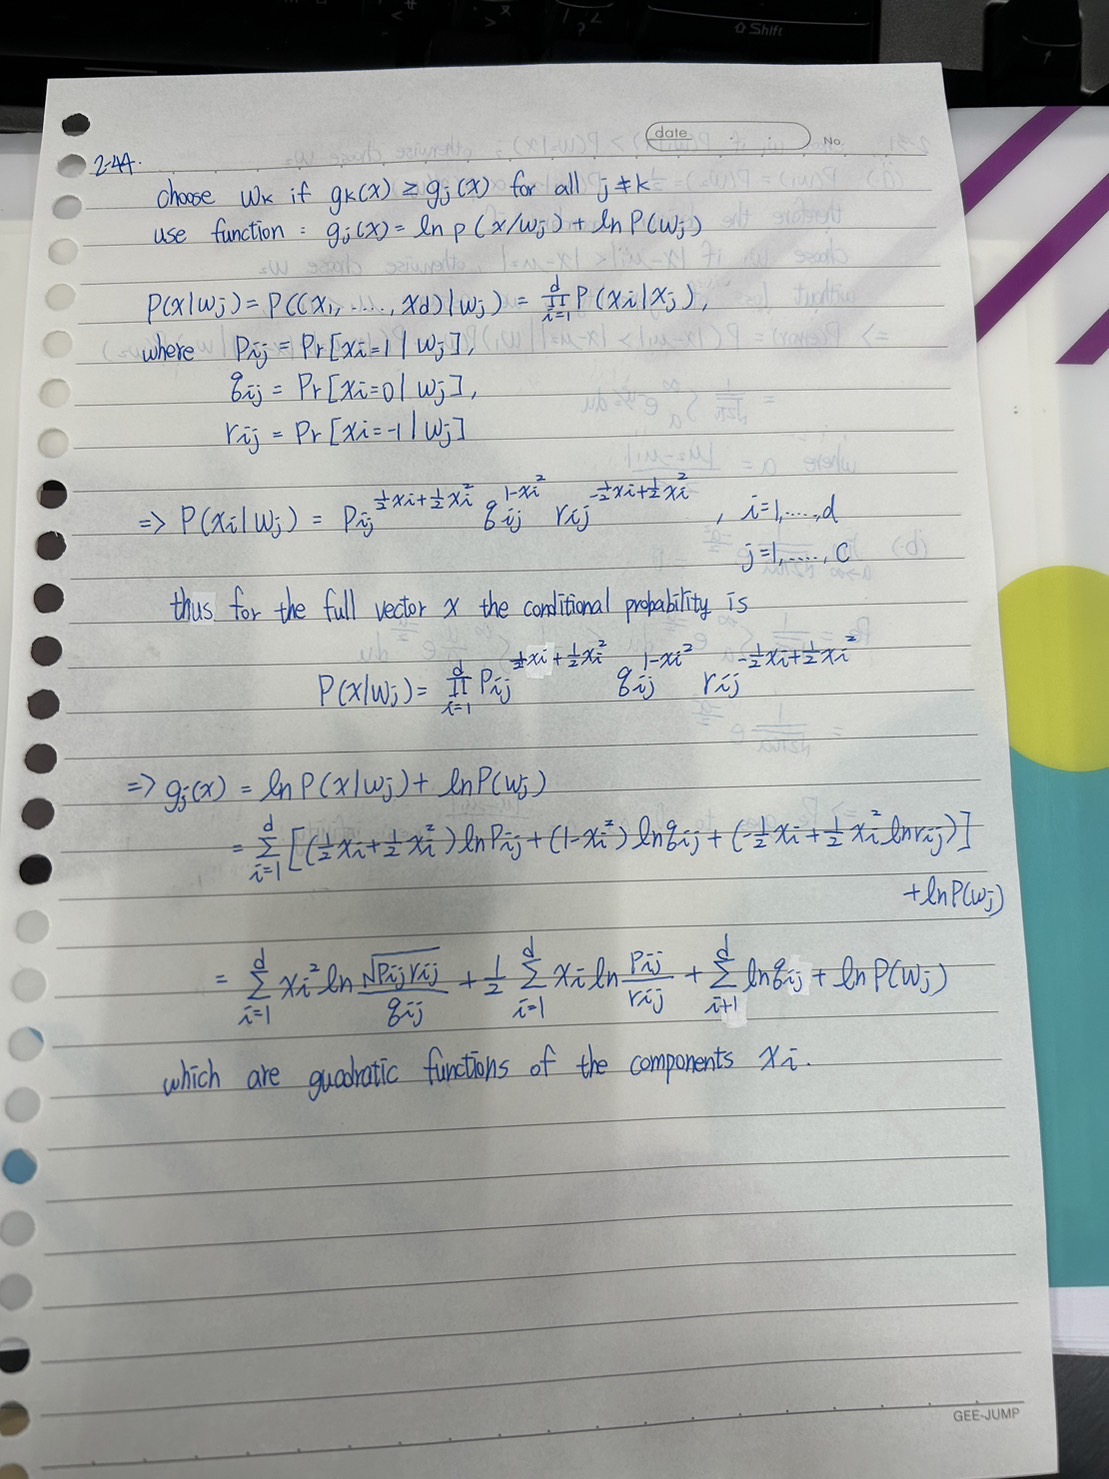 ⇧ Shift
date
No.
2-44.
choose wk if gk(x) ≥ gj(x) for all j ≠ k
use function : gj(x) = ln p(x/wj) + ln P(wj)
P(x|wj) = P((x1, ...., xd)|wj) = ∏_{i=1}^{d} P(xi|xj),
where Pij = Pr[xi=1 | wj],
qij = Pr[xi=0 | wj],
rij = Pr[xi=-1 | wj]
=> P(xi|wj) = Pij^{½xi+½xi²} qij^{1-xi²} rij^{-½xi+½xi²} , i=1,....,d
j=1,....., c
thus for the full vector x the conditional probability is
P(x|wj) = ∏_{i=1}^{d} Pij^{½xi+½xi²} qij^{1-xi²} rij^{-½xi+½xi²}
=> gj(x) = ln P(x|wj) + ln P(wj)
= ∑_{i=1}^{d} [(½xi+½xi²) ln Pij + (1-xi²) ln qij + (-½xi+½xi² ln rij)]
+ ln P(wj)
= ∑_{i=1}^{d} xi² ln √(Pij rij)/qij + ½ ∑_{i=1}^{d} xi ln Pij/rij + ∑_{i+1}^{d} ln qij + ln P(wj)
which are quadratic functions of the components xi.
GEE-JUMP